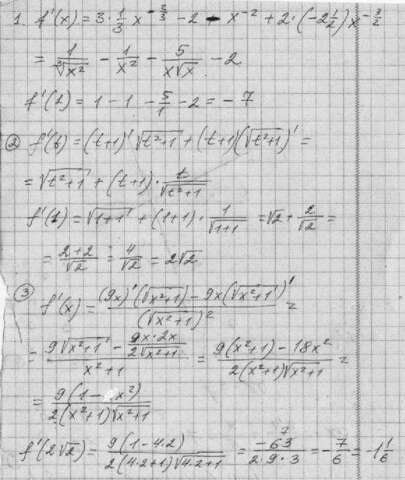 1. f'(x) = 3·1/3 x^(-2/3) - 2 - x^(-2) + 2·(-2 1/2) x^(-3/2)
= 1/∛(x²) - 1/x² - 5/(x√x) - 2
f'(1) = 1 - 1 - 5/1 - 2 = -7
② f'(t) = (t+1)'√(t²+1) + (t+1)(√(t²+1))' =
= √(t²+1) + (t+1)·t/√(t²+1)
f'(1) = √(1+1) + (1+1)·1/√(1+1) = √2 + 2/√2 =
= (2+2)/√2 = 4/√2 = 2√2
③ f'(x) = ((9x)'(√(x²+1)) - 9x(√(x²+1))')/(√(x²+1))² =
= (9√(x²+1) - 9x·2x/(2√(x²+1)))/(x²+1) = (9(x²+1) - 18x²)/(2(x²+1)√(x²+1)) =
= 9(1 - x²)/(2(x²+1)√(x²+1))
f'(2√2) = 9(1-4·2)/(2(4·2+1)√(4·2+1)) = -63/(2·9·3) = -7/6 = -1 1/6